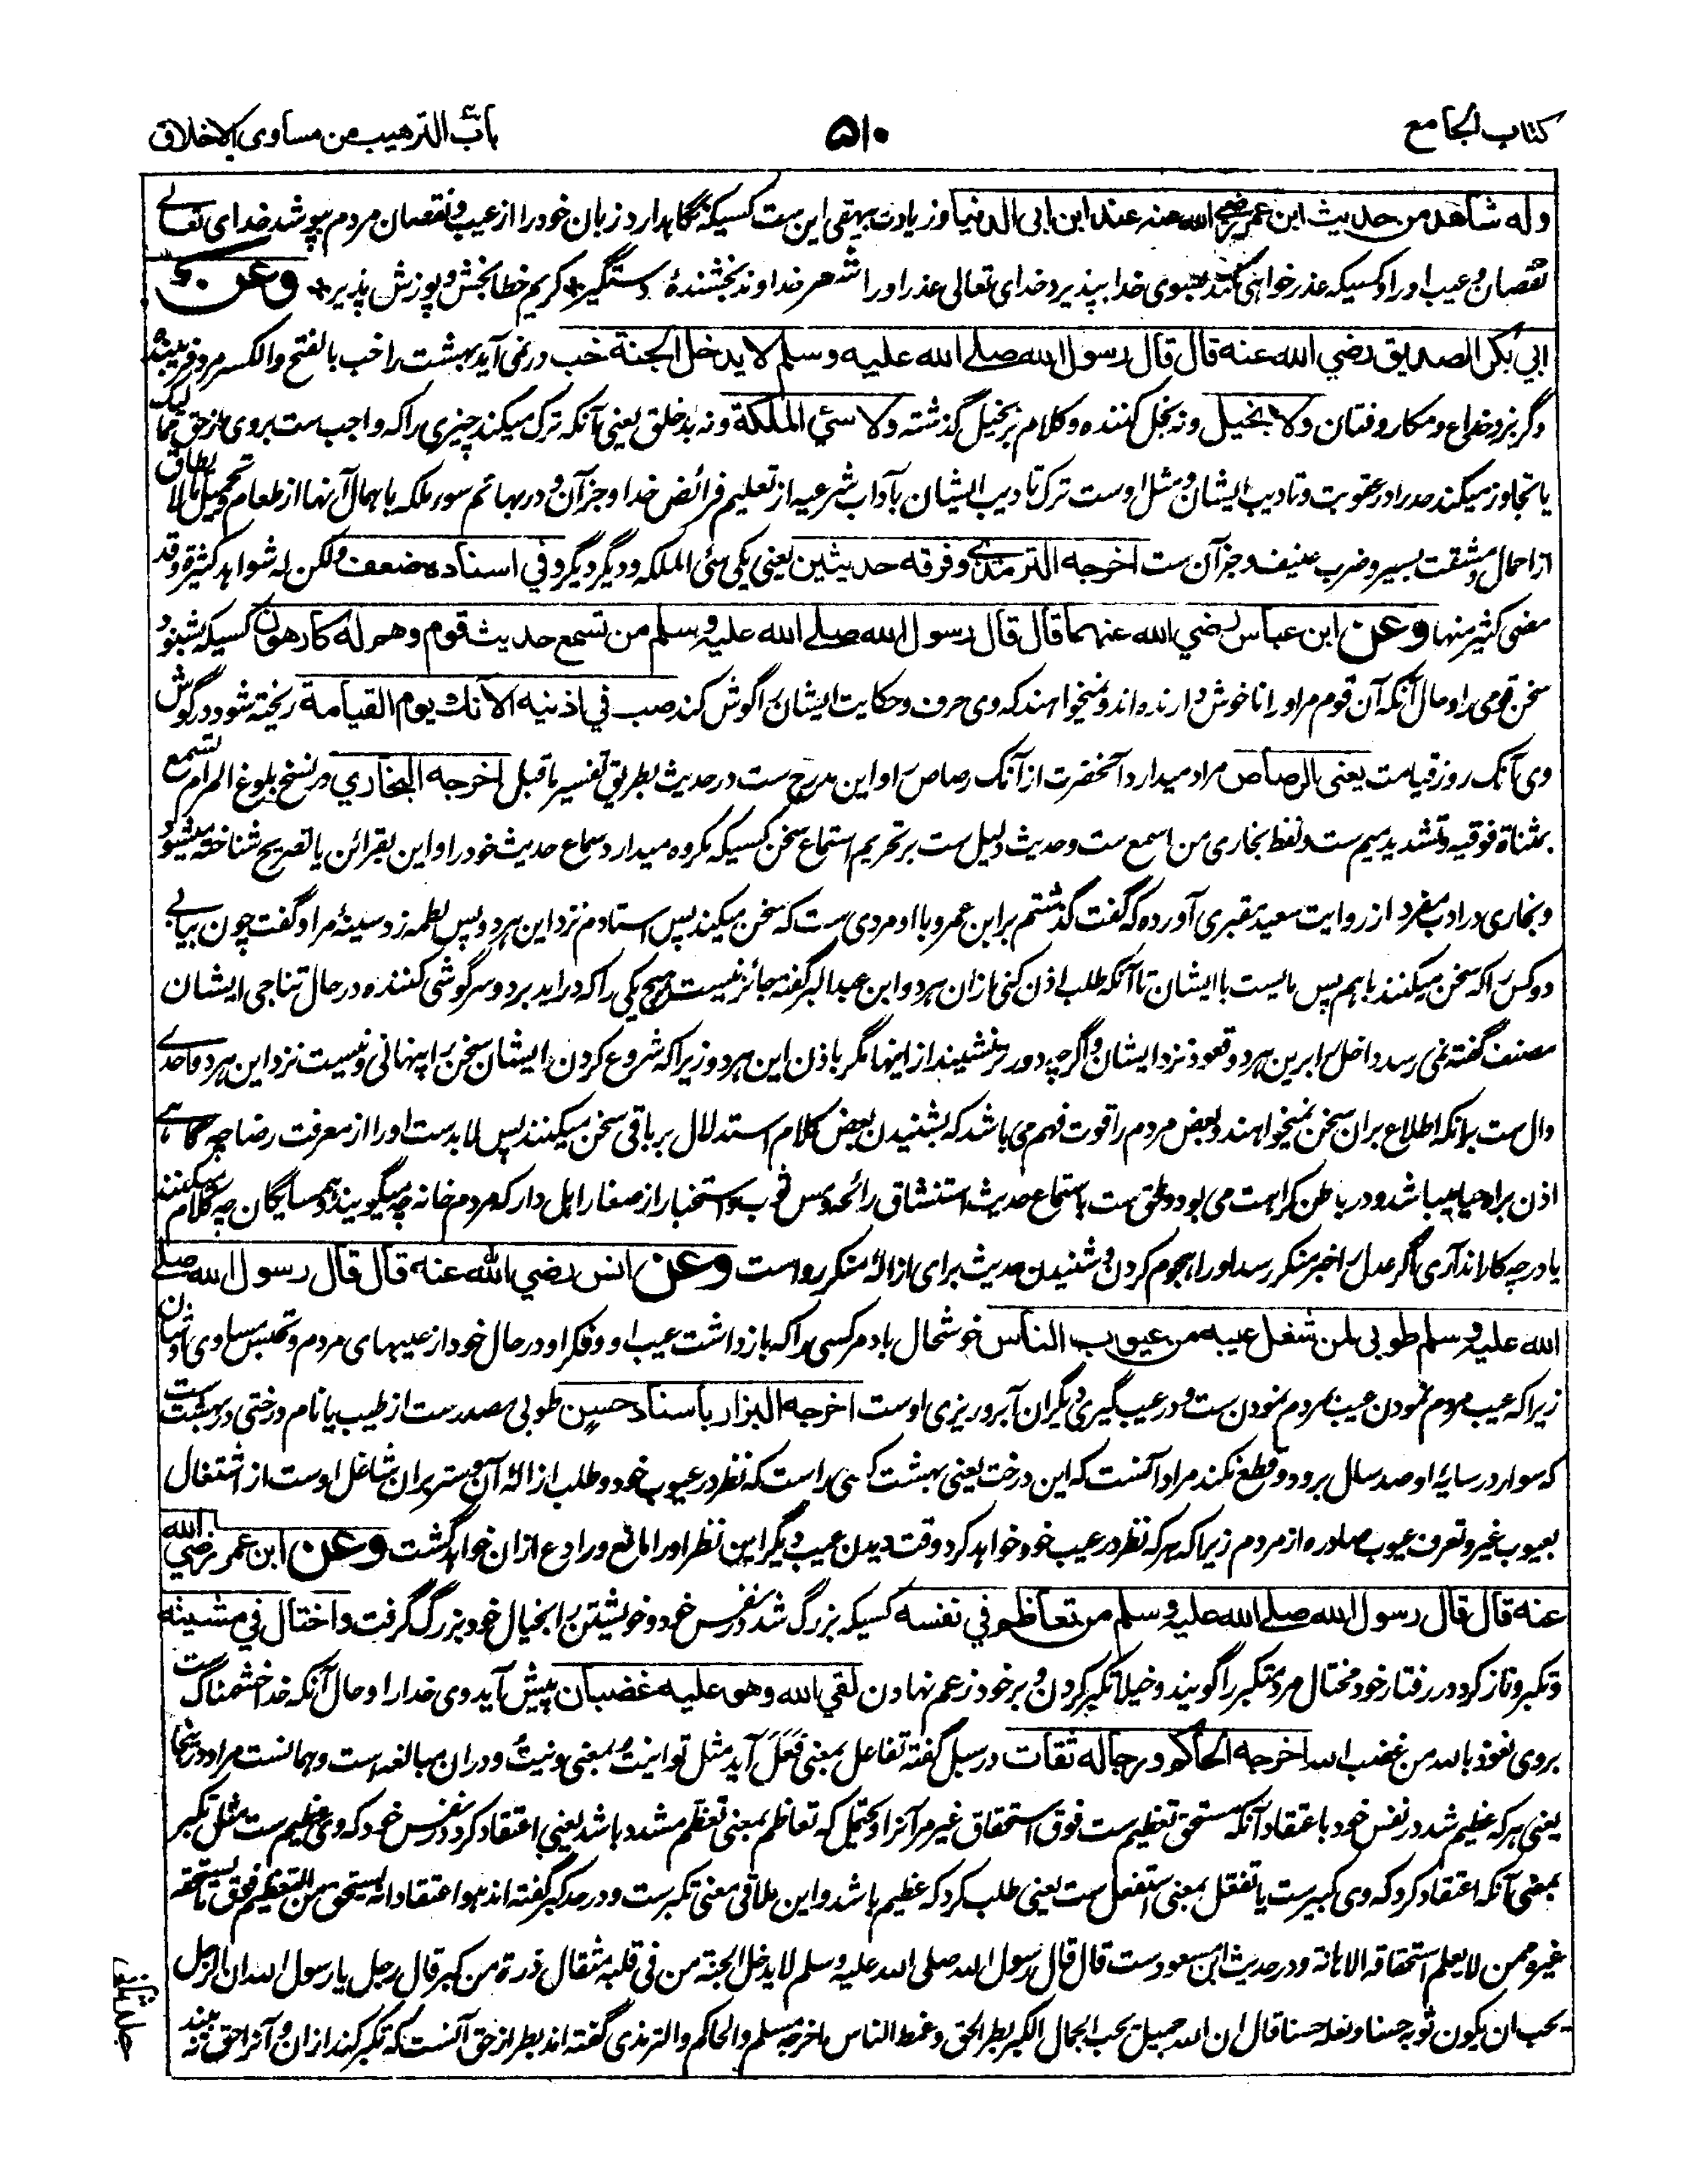 کتاب الجامع
۵۱۰
باب الترهیب من مساوی الاخلاق
وله شاهد من حدیث ابن عمر رضي الله عنه عند ابن ابی الدنیا وزیادت بیهقی این ست کسیکه نگاهدارد زبان خود را از عیب و نقصان مردم بپوشد خدای تعالے
نقصان و عیب او را و کسیکه عذرخواهی کند بسوی خدا بپذیرد خدای تعالی عذر او را شعر خداوند بخشندۀ دستگیر * کریم خطابخش و پوزش پذیر * وعن
ابي بکر الصدیق رضي الله عنه قال قال رسول الله صلے الله علیه وسلم لا یدخل الجنة خب درنمی آید بهشت را خب بالفتح والکسر مرد فریبنده
وگربز و خداع و مکار و فتان ولا بخیل ونه بخل کننده وکلام بر بخیل گذشته ولا سئي الملکة ونه بدخلق یعنی آنکه ترک میکند چیزی را که واجب ست بروی از حق ممالیک
یا تجاوز میکند حد را در عقوبت و تادیب ایشان و مثل اوست ترک تادیب ایشان بآداب شرعیه از تعلیم فرائض خدا و جز آن و در بهائم سوء ملکه باهمال آنها از طعام و تحمیل مالایطاق
از احمال و مشقت بسیر و ضرب عنیف و جز آن ست اخرجه الترمذے وفرقه حدیثین یعنی یکی سئ الملکه و دیگر دیگر وفي اسناده ضعف ولکن له شواهد کثیرة وقد
مضی کثیر منها وعن ابن عباس رضي الله عنهما قال قال رسول الله صلے الله علیه وسلم من تسمع حدیث قوم وهم له کارهون کسیکه بشنود
سخن قومی را و حال آنکه آن قوم مر او را ناخوش دارنده اند و نمیخواهند که وی حرف و حکایت ایشان را گوش کند صب في اذنیه الآنك یوم القیامة ریخته شود در گوش
وی آنک روز قیامت یعنی الرصاص مراد میدارد آنحضرت از آنک رصاص را و این مدرج ست در حدیث بطریق تفسیر ماقبل اخرجه البخاري در نسخ بلوغ المرام تسمع
بمثناة فوقیه و تشدید میم ست و لفظ بخاری من اسمع ست وحدیث دلیل ست بر تحریم استماع سخن کسیکه مکروه میدارد سماع حدیث خود را و این بقرائن یا تصریح شناخته میشود
وبخاری در ادب مفرد از روایت سعید مقبری آورده که گفت گذشتم بر ابن عمر و با او مردی ست که سخن میکند پس استادم نزد این هر دو پس لطمه زد سینۀ مرا و گفت چون بیابے
دو کس را که سخن میکنند با هم پس مایست با ایشان تا آنکه طلب اذن کنی از ان هر دو و ابن عبدالبر گفته جائز نیست هیچ یکی را که دراید بر دو سرگوشی کننده در حال تناجی ایشان
مصنف گفته نمی رسد داخل را برین هر دو قعود نزد ایشان و اگرچه دورتر نشیند از اینها مگر باذن این هر دو زیرا که شروع کردن ایشان سخن را پنهانی و نیست نزد این هر دو احدے
دال ست بر آنکه اطلاع بران سخن نمیخواهند و بعض مردم را قوت فهم می باشد که بشنیدن بعض کلام استدلال بر باقی سخن میکنند پس لابدست او را از معرفت رضا چه گاهے
اذن براه حیا میباشد و در باطن کراهت می بود و ملحق ست باستماع حدیث استنشاق رائحه و مس ثوب و استخبار از صغار اهل دار که مردم خانه چه میگویند و همسایگان چه کلام میکنند
یا درچه کار اند آری اگر عدل را خبر منکر رسد او را هجوم کردن و شنیدن حدیث برای ازالۀ منکر رواست وعن انس رضي الله عنه قال قال رسول الله صلے
الله علیه وسلم طوبی لمن شغل عیبه من عیوب الناس خوشحال باد مر کسی را که بازداشت عیب او و فکر او در حال خود از عیبهای مردم و تجسس مساوی اوشان
زیرا که عیب مردم نمودن عیب بمردم نمودن ست و در عیب گیری دیگران آبروریزی اوست اخرجه البزار باسناد حسن طوبی مصدرست از طیب یا نام درختی در بهشت ست
که سوار در سایۀ او صد سال برود و قطع نکند مراد آنست که این درخت یعنی بهشت کسی راست که نظر در عیوب خود و طلب ازالۀ آن و ستر بران شاغل اوست از اشتغال
بعیوب غیر و تعرف عیوب صادره از مردم زیرا که هر که نظر در عیب خود خواهد کرد وقت دیدن عیب دیگر این نظر او را مانع و رادع از ان خواهد گشت وعن ابن عمر رضي الله
عنه قال قال رسول الله صلے الله علیه وسلم من تعاظم في نفسه کسیکه بزرگ شد در نفس خود و خویشتن را بخیال خود بزرگ گرفت واختال في مشیته
وتکبر و ناز کرد در رفتار خود مختال مرد متکبر را گویند و خیلا تکبر کردن و بر خود زعم نهادن لقي الله وهو علیه غضبان پیش آید وی خدا را و حال آنکه خدا خشمناک ست
بروی نعوذ بالله من غضب الله اخرجه الحاکم ورجاله ثقات در سبل گفته تفاعل بمعنی فعل آید مثل توانیت بمعنی ونیت و دران مبالغه است و همانست مراد در اینجا
یعنی هر که عظیم شد در نفس خود باعتقاد آنکه مستحق تعظیم ست فوق استحقاق غیر مر آنرا و یحتمل که تعاظم بمعنی تعظم مشدد باشد یعنی اعتقاد کرد در نفس خود که وی عظیم ست مثل تکبر
بمعنی آنکه اعتقاد کرد که وی کبیرست یا تفعل بمعنی استفعل ست یعنی طلب کرد که عظیم باشد و این ملاقی معنی تکبرست و در حد کبر گفته اند هو اعتقاد انه یستحق من التعظیم فوق ما یستحقه
غیره ممن لا یعلم استحقاقه الاهانة و در حدیث ابن مسعودست قال قال رسول الله صلی الله علیه وسلم لا یدخل الجنة من فی قلبه مثقال ذرة من کبر قال رجل یا رسول الله ان الرجل
یحب ان یکون ثوبه حسنا ونعله حسنا قال ان الله جمیل یحب الجمال الکبر بطر الحق وغمط الناس اخرجه مسلم والحاکم والترمذی گفته اند بطر از حق آنست که تکبر کند از ان و آنرا حق نه بیند